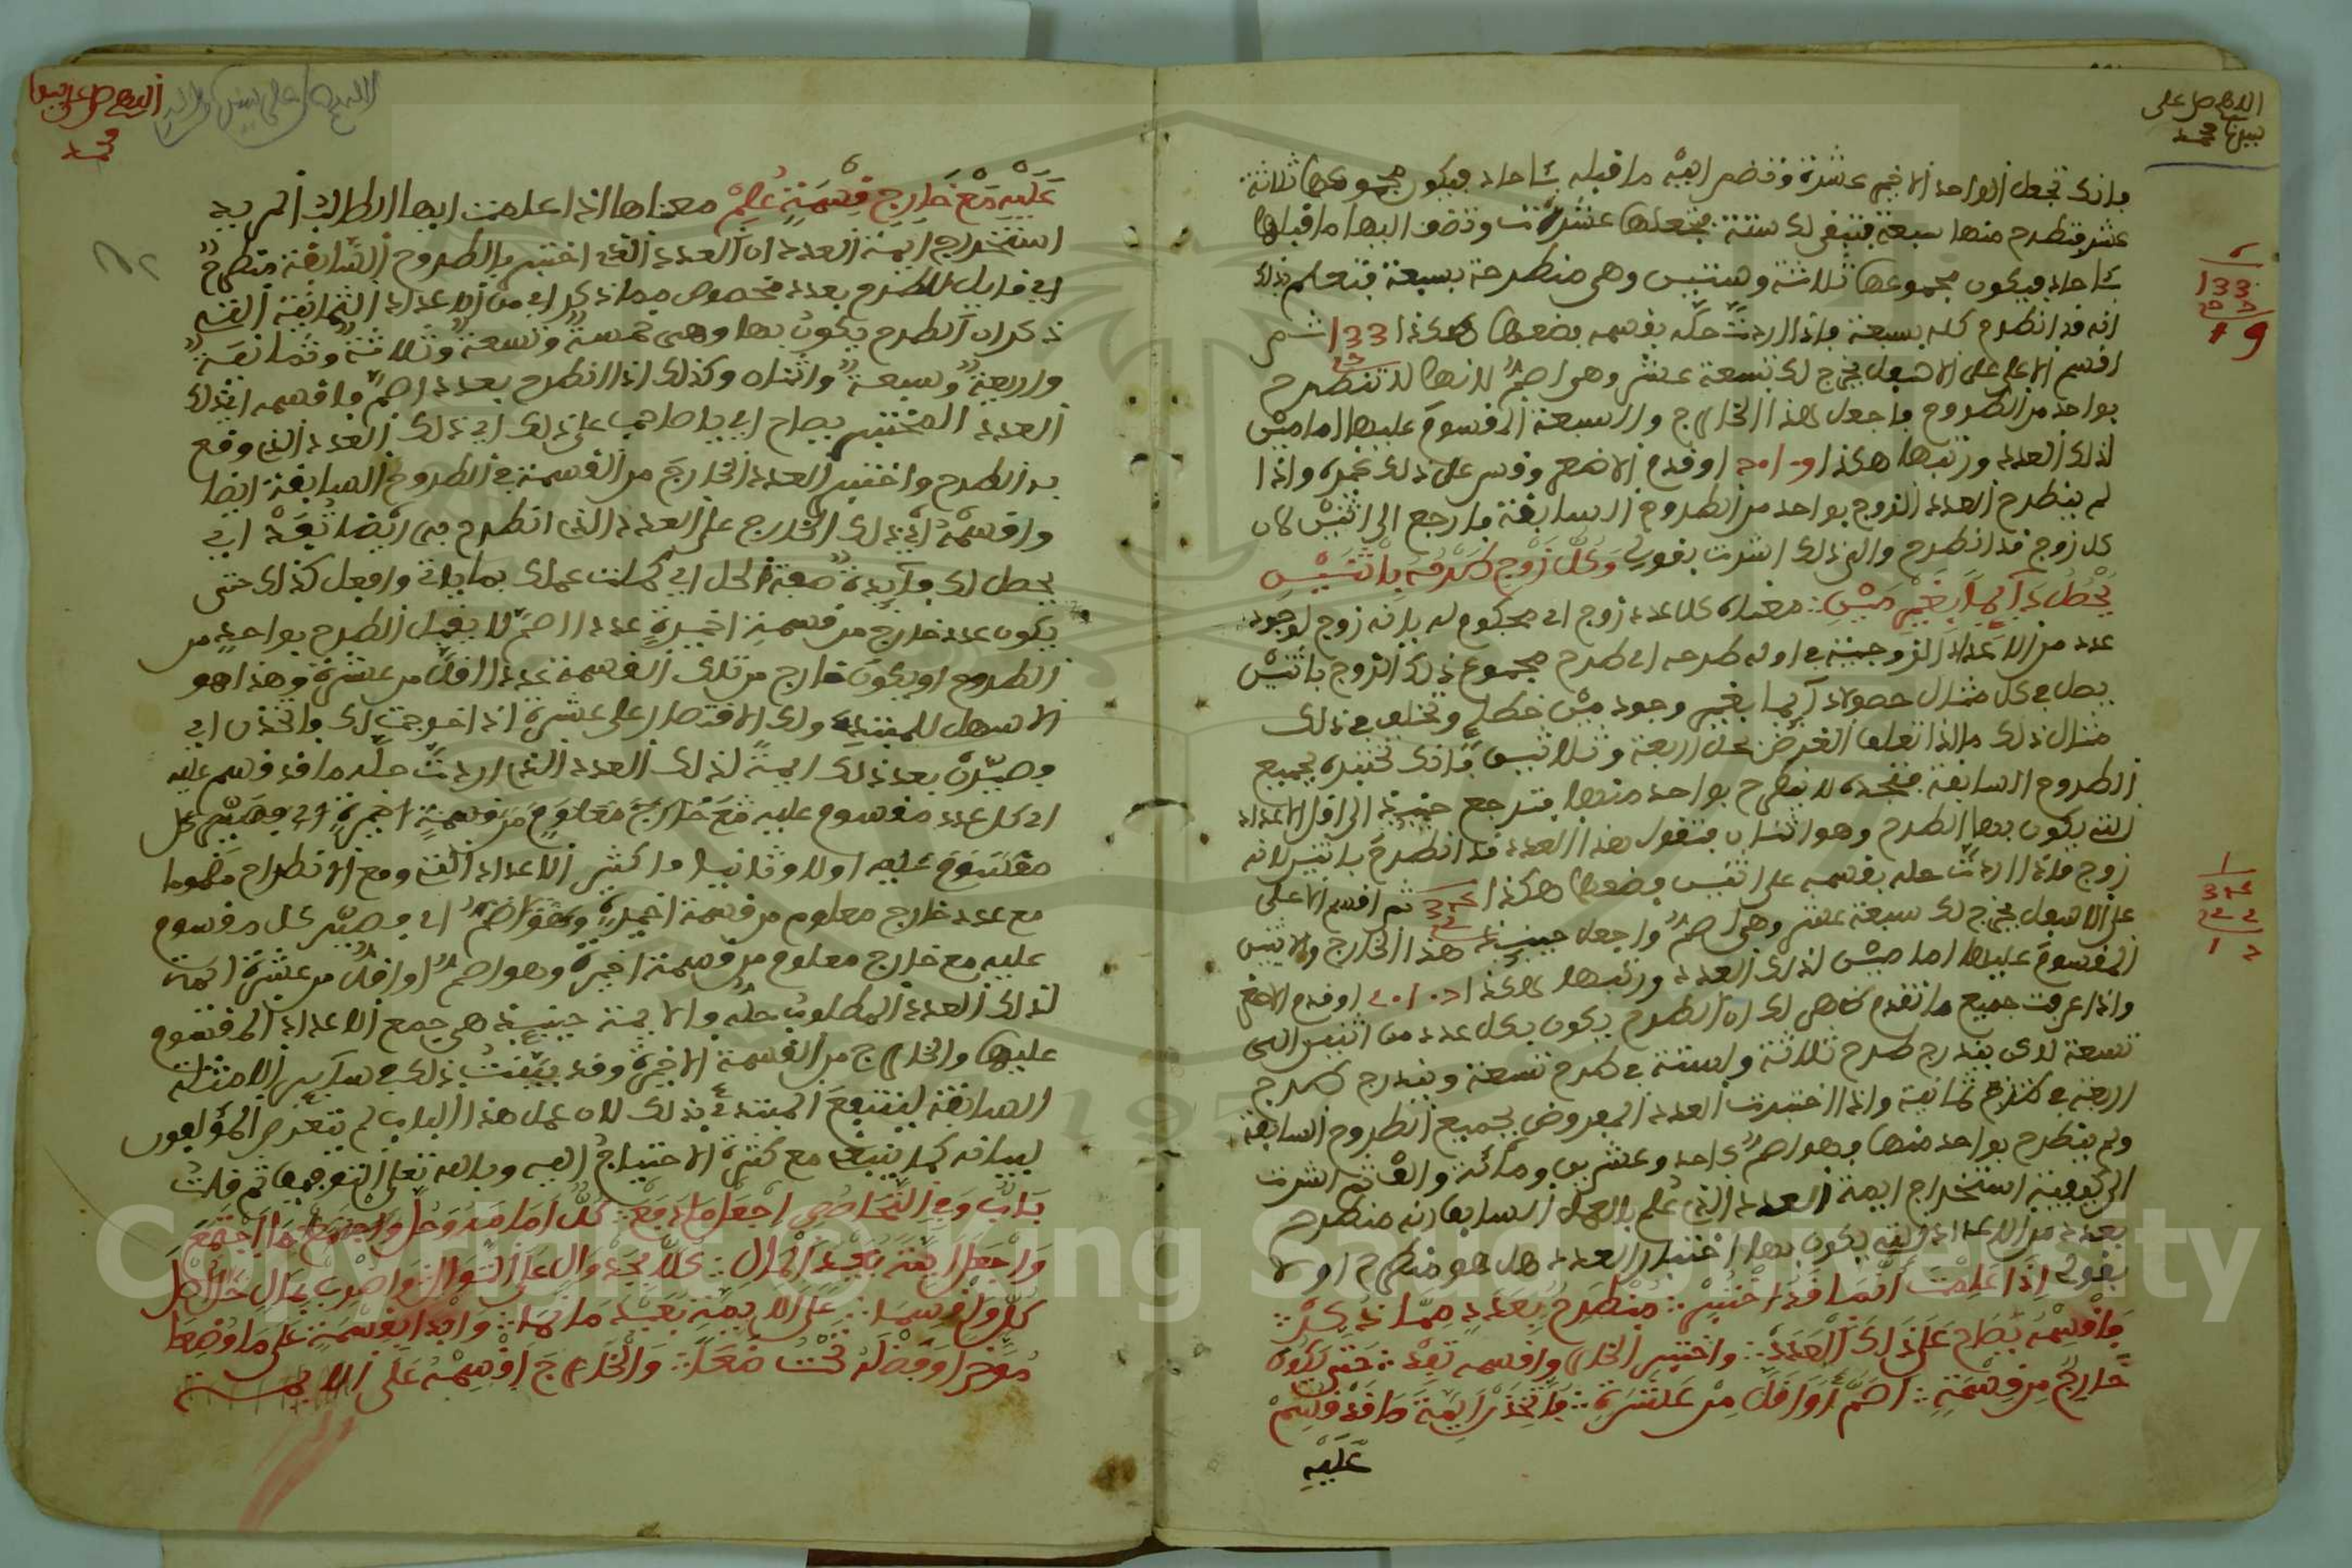 اللهم صل على
سيدنا محمد
فإنك تجعل الواحد الاخير عشرة وتضم اليه ما قبله آحادا فيكون مجموعهما ثلاثة
عشر فتطرح منها سبعة فتبقى لك ستة فتجعلها عشرات وتضف اليها ما قبلها
آحادا فيكون مجموعها ثلاثة وستين وهي منطرحة بسبعة فتعلم بذلك
انه قد انطرح كله بسبعة فاذا اردت حله بقسمه فضعها هكذا 133 ثم
اقسم الاعلى على الاسفل يخرج لك تسعة عشر وهو اصم لانها لا تنطرح
بواحد من الطروح فاجعل هذا الخارج والسبعة المقسوم عليها امامين
لذلك العدد ورتبها هكذا او قدم الاصغر وقس على ذلك غيره واذا
لم ينطرح العدد الزوج بواحد من الطروح السابقة فارجع الى اثنين لان
كل زوج قد انطرح والى ذلك اشرت بقولي وكل زوج طرحه باثنين
يحصل دائما بغير مين معناه كل عدد زوج اي محكوم له بانه زوج لوجود
عدد من الاعداد الزوجية في اوله طرحه اي طرح مجموع ذلك الزوج باثنين
يصل في كل مثال حصولا دائما بغير وجود مين خطا وتخلف في ذلك
مثال ذلك ما اذا تعلق الغرض بحل اربعة وثلاثين فانك تختبره بجميع
الطروح السابقة فتجده لا ينطرح بواحد منها فترجع حينئذ الى اقل الاعداد
التي يكون بها الطرح وهو اثنان فتقول هذا العدد قد انطرح باثنين لانه
زوج فاذا اردت حله بقسمه على اثنين فضعها هكذا ثم اقسم الاعلى
على الاسفل يخرج لك سبعة عشر وهي اصم واجعل حينئذ هذا الخارج والاثنين
المقسوم عليها امامين لذلك العدد ورتبها هكذا او قدم الاصغر
واذا عرفت جميع ما تقدم ظهر لك ان الطرح يكون بكل عدد من اثنين الى
تسعة لاكن يندرج طرح ثلاثة وستة في طرح تسعة ويندرج طرح
اربعة في طرح ثمانية واذا اختبرت العدد المفروض بجميع الطروح السابقة
ولم ينطرح بواحد منها فهو اصم كاحد وعشرين ومائة والف ثم اشرت
الى كيفية استخراج ايمة العدد الذي علم بالعمل السابق انه منطرح
بعدد من الاعداد التي يكون بها اختبار العدد هل هو منطرح او لا
بقولي اذا علمت انما قد اختبر منطرح بعدد مما ذكر
فاقسمه يصاح على ذلك العدد واختبر الخارج واقسمه تفد حتى يكون
خارج من قسمة اصم او اقل من عشرة فاتخذن ايمة ما قد قسم
عليه
133
19
34
اللهم صل على سيدنا
محمد
عليه مع خارج قسمة علم معناها اذا علمت ايها الطالب المريد
استخراج ايمة العدد ان العدد الذي اختبر بالطروح السابقة منطرح
اي قابل للطرح بعدد مخصوص مما ذكر اي من الاعداد الثمانية التي
ذكر ان الطرح يكون بها وهي خمسة وتسعة وثلاثة وثمانية
واربعة وسبعة واثنان وكذلك اذا انطرح بعدد اصم فاقسمه اي ذلك
العدد المختبر يصاح اي يا صاحب على ذلك اي ذلك العدد الذي وقع
به الطرح واختبر العدد الخارج من القسمة في الطروح السابقة ايضا
واقسمه اي ذلك الخارج على العدد الذي انطرح به ايضا تفد اي
يحصل لك فايدة صفة الحل اي كملت عملك بما ياتي وافعل كذلك حتى
يكون عدد خارج من قسمة اخيرة عددا اصم لا يقبل الطرح بواحد من
الطروح او يكون خارج من تلك القسمة عددا اقل من عشرة وهذا هو
الاسهل للمبتدي ولك الاقتصار على عشرة اذا خرجت لك واتخذن اي
وصيرن بعد ذلك ايمة لذلك العدد الذي اردت حله ما قد قسم عليه
اي كل عدد مقسوم عليه مع خارج معلوم من قسمة اخيرة اي فصير كل
مقسوم عليه اولا وثانيا واكثر الاعداد التي وقع الانطراح بها
مع عدد خارج معلوم من قسمة اخيرة وهو اصم اي وصير كل مقسوم
عليه مع خارج معلوم من قسمة اخيرة وهو اصم او اقل من عشرة ايمة
لذلك العدد المطلوب حله والايمة حينئذ هي جميع الاعداد المقسوم
عليها والخارج من القسمة الاخيرة وقد بينت ذلك في ساير الامثلة
السابقة لينتفع المبتدي بذلك لان عمل هذا الباب لم يتعرض المؤلفون
لبيانه كما ينبغي مع كثرة الاحتياج اليه وبالله تعالى التوفيق ثم قلت
باب وفي التحاصص اجعل ما دفع كل اماما وحل واجمع ما اجتمع
واجعل ايمة بعيد المال كلا بجدول على التوال واضرب بمال حل اصل
كل واقسما على الايمة بعيد ما نما وابدا بقسمة على ما وضعا
موخرا وفضله تحت ضعا والخارج اقسمه على الايمة